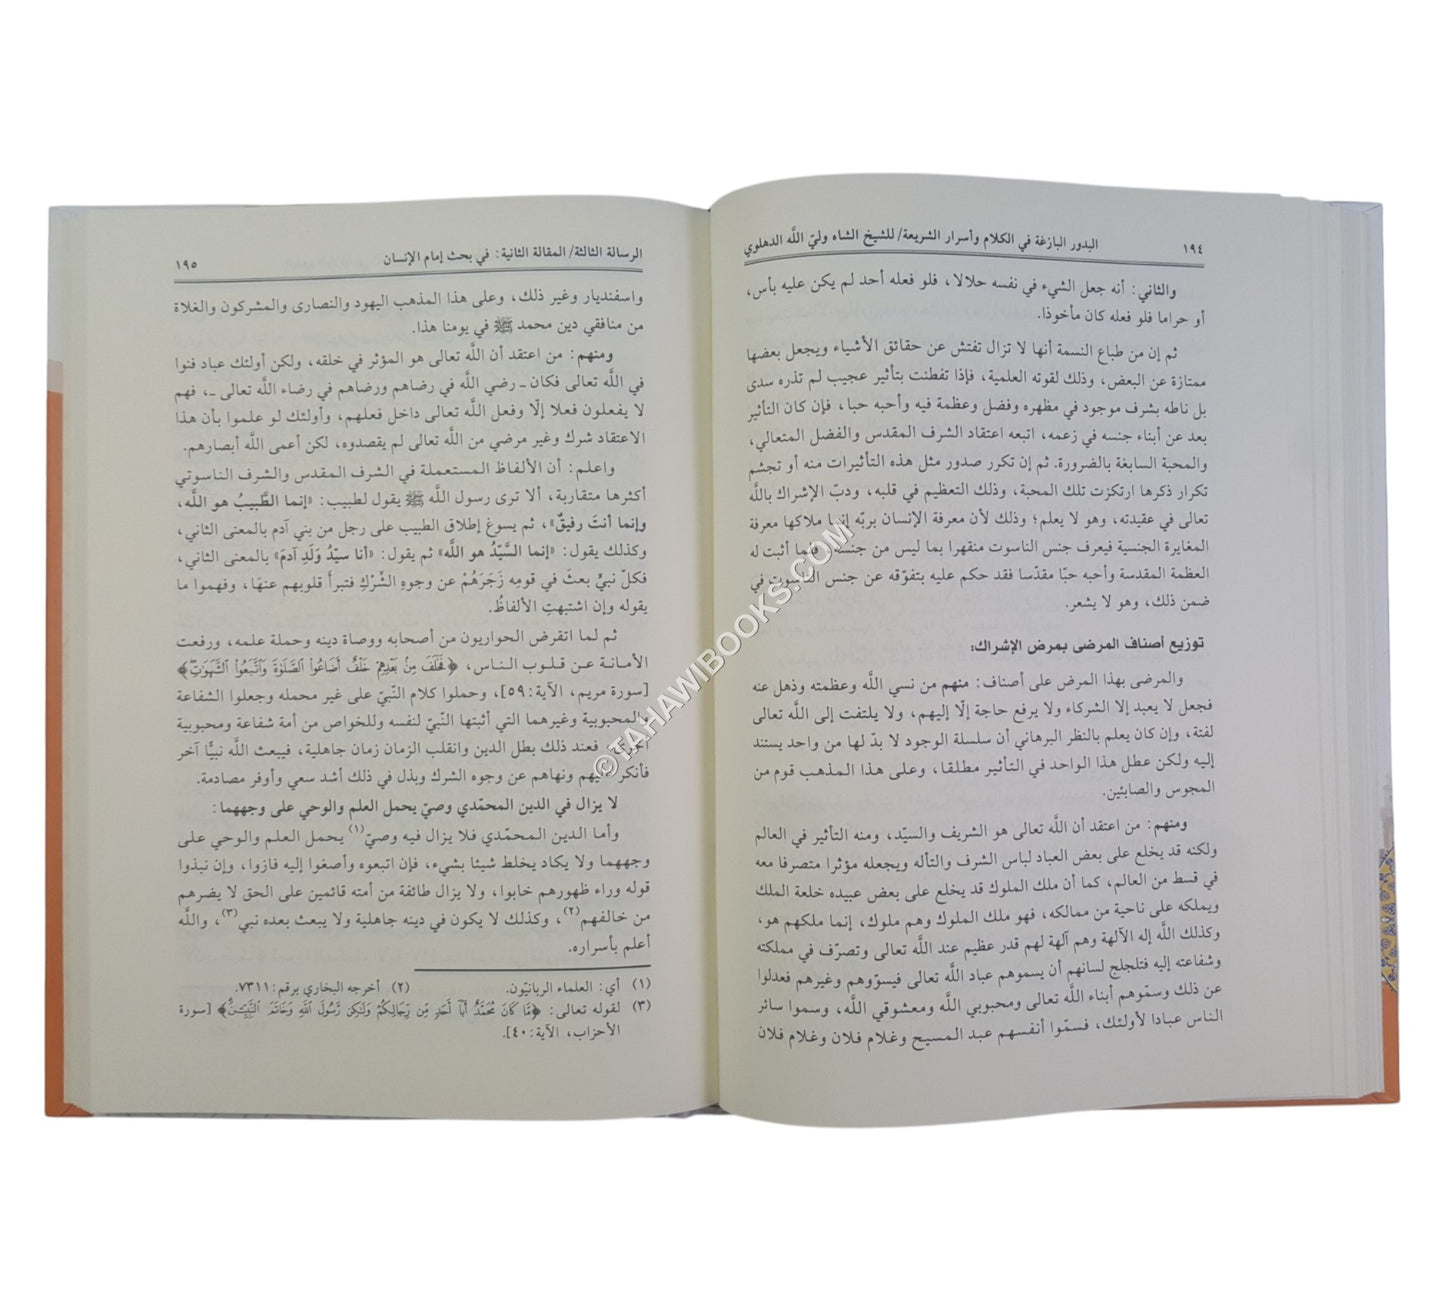 ١٩٤ البدور البازغة في الكلام وأسرار الشريعة/ للشيخ الشاه وليّ اللَّه الدهلوي
والثاني: أنه جعل الشيء في نفسه حلالا، فلو فعله أحد لم يكن عليه بأس،
أو حراما فلو فعله كان مأخوذا.
ثم إن من طباع النسمة أنها لا تزال تفتش عن حقائق الأشياء ويجعل بعضها
ممتازة عن البعض، وذلك لقوته العلمية، فإذا تفطنت بتأثير عجيب لم تذره سدى
بل ناطه بشرف موجود في مظهره وفضل وعظمة فيه وأحبه حبا، فإن كان التأثير
بعد عن أبناء جنسه في زعمه، اتبعه اعتقاد الشرف المقدس والفضل المتعالي،
والمحبة السابغة بالضرورة. ثم إن تكرر صدور مثل هذه التأثيرات منه أو تجشم
تكرار ذكرها ارتكزت تلك المحبة، وذلك التعظيم في قلبه، ودبّ الإشراك باللَّه
تعالى في عقيدته، وهو لا يعلم؛ وذلك لأن معرفة الإنسان بربّه إنما ملاكها معرفة
المغايرة الجنسية فيعرف جنس الناسوت منقهرا بما ليس من جنسه، فلما أثبت له
العظمة المقدسة وأحبه حبّا مقدّسا فقد حكم عليه بتفوّقه عن جنس الناسوت في
ضمن ذلك، وهو لا يشعر.
توزيع أصناف المرضى بمرض الإشراك:
والمرضى بهذا المرض على أصناف: منهم من نسي اللَّه وعظمته وذهل عنه
فجعل لا يعبد إلا الشركاء ولا يرفع حاجة إلّا إليهم، ولا يلتفت إلى اللَّه تعالى
لفتة، وإن كان يعلم بالنظر البرهاني أن سلسلة الوجود لا بدّ لها من واحد يستند
إليه ولكن عطل هذا الواحد في التأثير مطلقا، وعلى هذا المذهب قوم من
المجوس والصابئين.
ومنهم: من اعتقد أن اللَّه تعالى هو الشريف والسيّد، ومنه التأثير في العالم
ولكنه قد يخلع على بعض العباد لباس الشرف والتأله ويجعله مؤثرا متصرفا معه
في قسط من العالم، كما أن ملك الملوك قد يخلع على بعض عبيده خلعة الملك
ويملكه على ناحية من ممالكه، فهو ملك الملوك وهم ملوك، إنما ملكهم هو،
وكذلك اللَّه إله الآلهة وهم آلهة لهم قدر عظيم عند اللَّه تعالى وتصرّف في مملكته
وشفاعته إليه فتلجلج لسانهم أن يسموهم عباد اللَّه تعالى فيسوّوهم وغيرهم فعدلوا
عن ذلك وسمّوهم أبناء اللَّه تعالى ومحبوبي اللَّه ومعشوقي اللَّه، وسموا سائر
الناس عبادا لأولئك، فسمّوا أنفسهم عبد المسيح وغلام فلان وغلام فلان
الرسالة الثالثة/ المقالة الثانية: في بحث إمام الإنسان ١٩٥
واسفنديار وغير ذلك، وعلى هذا المذهب اليهود والنصارى والمشركون والغلاة
من منافقي دين محمد ﷺ في يومنا هذا.
ومنهم: من اعتقد أن اللَّه تعالى هو المؤثر في خلقه، ولكن أولئك عباد فنوا
في اللَّه تعالى فكان ـ رضي اللَّه في رضاهم ورضاهم في رضاء اللَّه تعالى ـ، فهم
لا يفعلون فعلا إلّا وفعل اللَّه تعالى داخل فعلهم، وأولئك لو علموا بأن هذا
الاعتقاد شرك وغير مرضي من اللَّه تعالى لم يقصدوه، لكن أعمى اللَّه أبصارهم.
واعلم: أن الألفاظ المستعملة في الشرف المقدس والشرف الناسوتي
أكثرها متقاربة، ألا ترى رسول اللَّه ﷺ يقول لطبيب: «إنما الطَّبيبُ هو اللَّه،
وإنما أنتَ رفيقٌ»، ثم يسوغ إطلاق الطبيب على رجل من بني آدم بالمعنى الثاني،
وكذلك يقول: «إنما السَّيّدُ هو اللَّه» ثم يقول: «أنا سيّدُ وَلَدِ آدمَ» بالمعنى الثاني،
فكلّ نبيٍّ بعثَ في قومِه زَجَرَهُمْ عن وجوهِ الشِّرْكِ فتبرأ قلوبهم عنهَا، وفهموا ما
يقوله وإن اشتبهتِ الألفاظُ.
ثم لما انقرض الحواريون من أصحابه ووصاة دينه وحملة علمه، ورفعت
الأمانة عن قلوب الناس، ﴿فَخَلَفَ مِنۢ بَعۡدِهِمۡ خَلۡفٌ أَضَاعُواْ ٱلصَّلَوٰةَ وَٱتَّبَعُواْ ٱلشَّهَوَٰتِۖ﴾
[سورة مريم، الآية: ٥٩]، وحملوا كلام النّبيّ على غير محمله وجعلوا الشفاعة
والمحبوبية وغيرهما التي أثبتها النّبيّ لنفسه وللخواص من أمة شفاعة ومحبوبية
أخرى، فعند ذلك بطل الدين وانقلب الزمان زمان جاهلية، فيبعث اللَّه نبيًّا آخر
فأنكر عليهم ونهاهم عن وجوه الشرك وبذل في ذلك أشد سعي وأوفر مصادمة.
لا يزال في الدين المحمّدي وصيّ يحمل العلم والوحي على وجههما:
وأما الدين المحمّدي فلا يزال فيه وصيّ(١) يحمل العلم والوحي على
وجههما ولا يكاد يخلط شيئا بشيء، فإن اتبعوه وأصغوا إليه فازوا، وإن نبذوا
قوله وراء ظهورهم خابوا، ولا يزال طائفة من أمته قائمين على الحق لا يضرهم
من خالفهم(٢)، وكذلك لا يكون في دينه جاهلية ولا يبعث بعده نبي(٣)، واللَّه
أعلم بأسراره.
(١) أي: العلماء الربانيّون. (٢) أخرجه البخاري برقم: ٧٣١١.
(٣) لقوله تعالى: ﴿مَّا كَانَ مُحَمَّدٌ أَبَآ أَحَدٖ مِّن رِّجَالِكُمۡ وَلَٰكِن رَّسُولَ ٱللَّهِ وَخَاتَمَ ٱلنَّبِيِّـۧنَۗ﴾ [سورة
الأحزاب، الآية: ٤٠].
©TAHAWIBOOKS.COM